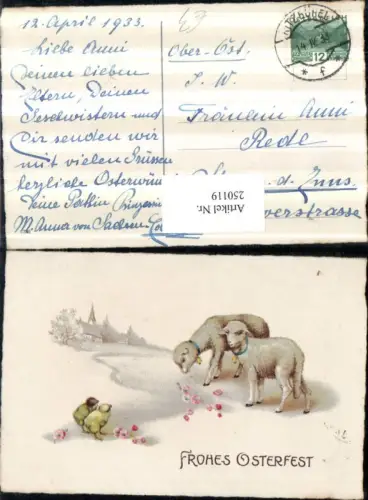 12. April 1933.
Liebe Anni
Deinen lieben
Eltern, Deinen
Geschwistern und
Dir senden wir
mit vielen Grüssen
herzliche Osterwün
Deine Patin Prinzessin
M. Anna von Sachsen-Co
Ober-Öst.
Fräulein Anni
Redl
a. d. Inns.
12
Artikel Nr.
250119
FROHES OSTERFEST